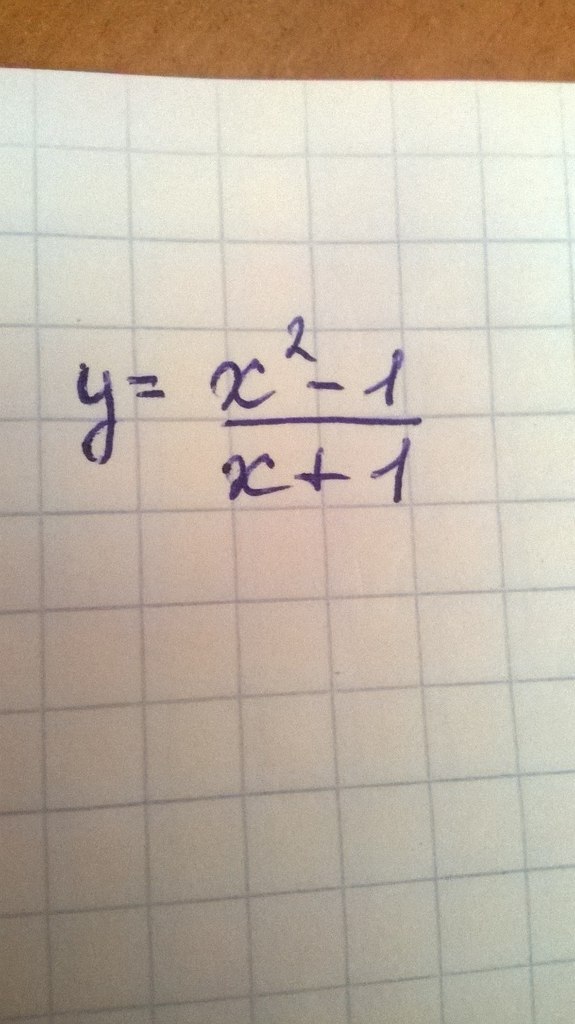 y = x² - 1 / x + 1